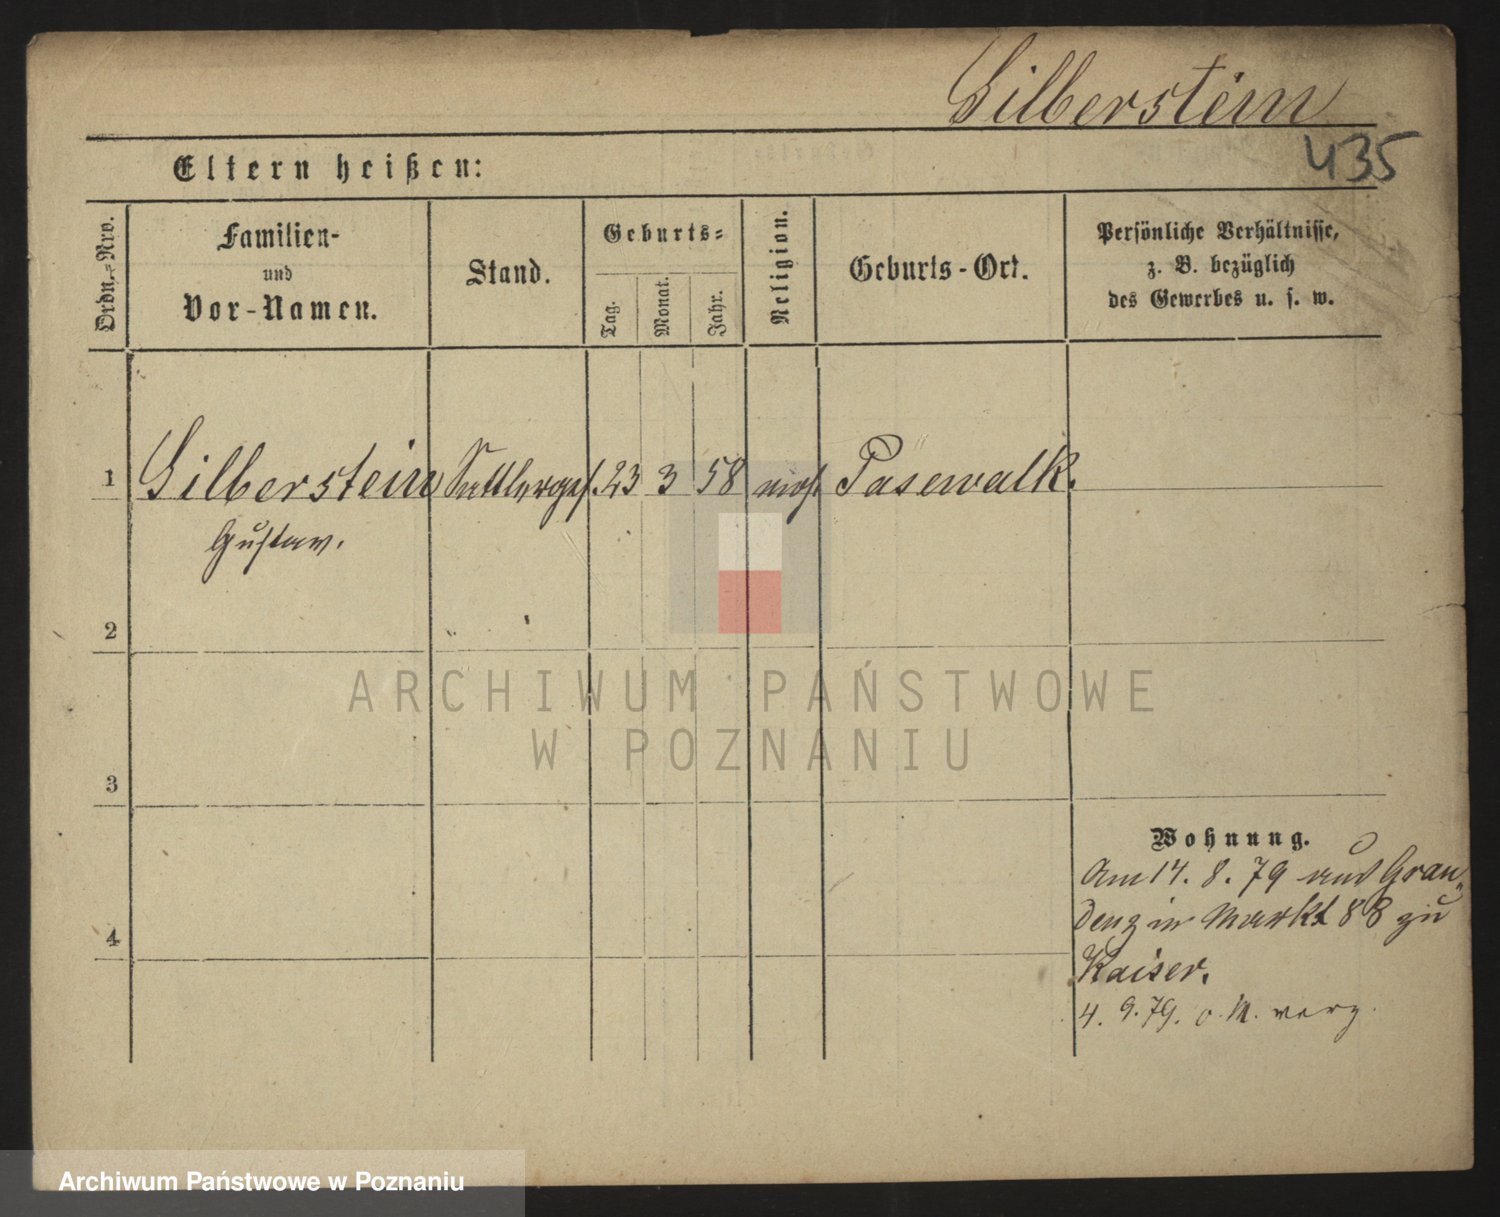 Silberstein
435
Eltern heißen:
Ordn.-Nro.
Familien-
und
Vor-Namen.
Stand.
Geburts-
Tag.
Monat.
Jahr.
Religion.
Geburts-Ort.
Persönliche Verhältnisse,
z. B. bezüglich
des Gewerbes u. s. w.
1 Silberstein Sattlerges. 23 3 58 mos. Pasewalk.
Gustav.
2
3
4
Wohnung.
Am 14. 8. 79 aus Grau-
denz in Markt 88 zu
Kaiser.
4. 9. 79. o. M. verz.
ARCHIWUM PAŃSTWOWE
W POZNANIU
Archiwum Państwowe w Poznaniu